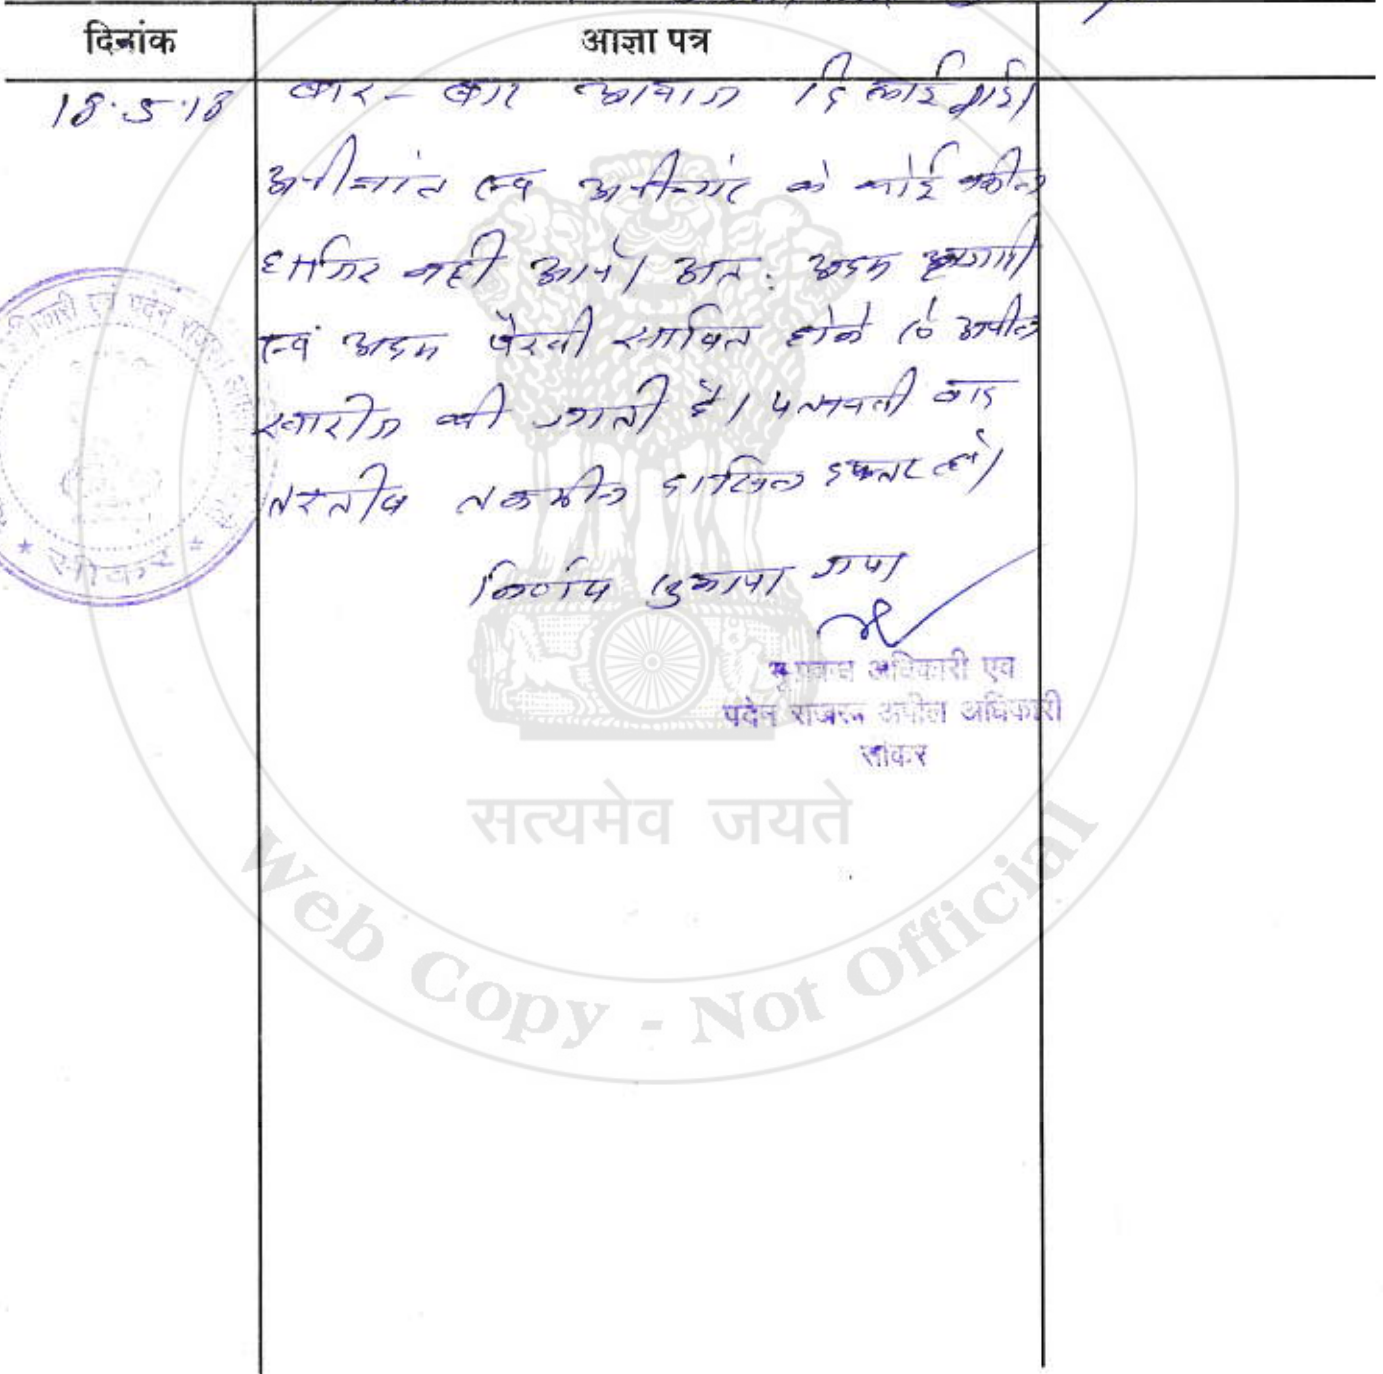 दिनांक आज्ञा पत्र
18.5.18 बार-बार आवाज दिलाई गई।
अपीलांट एवं अपीलांट के कोई वकील
हाजिर नहीं आये। अतः अदम हाजरी
एवं अदम पैरवी साबित होने से अपील
खारीज की जाती है। पत्रावली बाद
तरतीब तकमील दाखिल दफ्तर हो।
निर्णय सुनाया गया
भू प्रबन्ध अधिकारी एवं
पदेन राजस्व अपील अधिकारी
सीकर
एवं पदेन राजस्व
* सीकर *
सत्यमेव जयते
Web Copy - Not Official